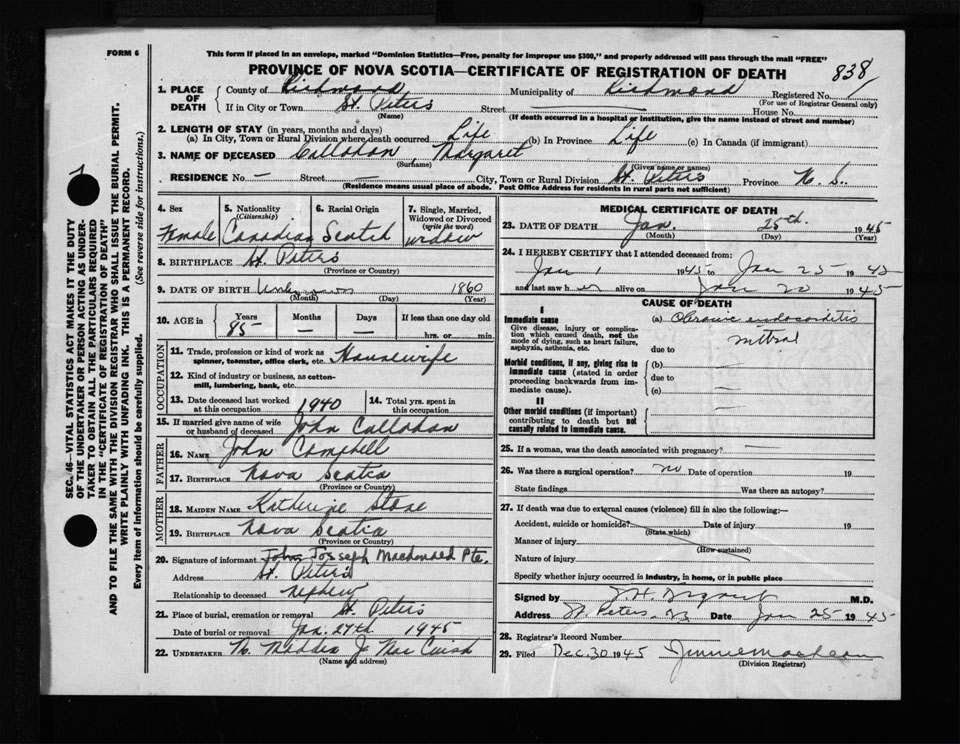 FORM 6
This form if placed in an envelope, marked "Dominion Statistics—Free, penalty for improper use $300," and properly addressed will pass through the mail "FREE"
PROVINCE OF NOVA SCOTIA—CERTIFICATE OF REGISTRATION OF DEATH
838
1. PLACE OF DEATH
County of Richmond Municipality of Richmond Registered No.
(For use of Registrar General only)
If in City or Town St. Peters Street House No.
(Name) (If death occurred in a hospital or institution, give the name instead of street and number)
2. LENGTH OF STAY (in years, months and days)
(a) In City, Town or Rural Division where death occurred Life (b) In Province Life (c) In Canada (if immigrant)
3. NAME OF DECEASED Callahan, Margaret
(Surname) (Given name or names)
RESIDENCE No. — Street — City, Town or Rural Division St. Peters Province N. S.
(Residence means usual place of abode. Post Office Address for residents in rural parts not sufficient)
4. Sex Female
5. Nationality (Citizenship) Canadian
6. Racial Origin Scotch
7. Single, Married, Widowed or Divorced (write the word) widow
8. BIRTHPLACE St. Peters
(Province or County)
9. DATE OF BIRTH Unknown 1860
(Month) (Day) (Year)
10. AGE in Years 85 Months — Days — If less than one day old
hrs. or min.
OCCUPATION
11. Trade, profession or kind of work as spinner, teamster, office clerk, etc. Housewife
12. Kind of industry or business, as cotton-mill, lumbering, bank, etc.
13. Date deceased last worked at this occupation 1940
14. Total yrs. spent in this occupation
15. If married give name of wife or husband of deceased John Callahan
FATHER
16. NAME John Campbell
17. BIRTHPLACE Nova Scotia
(Province or Country)
MOTHER
18. MAIDEN NAME Katherine Stone
19. BIRTHPLACE Nova Scotia
(Province or Country)
20. Signature of informant John Josseph Macdonald Pte.
Address St. Peter's
Relationship to deceased nephew
21. Place of burial, cremation or removal St. Peters
Date of burial or removal Jan. 27th 1945
22. UNDERTAKER
(Name and address)
MEDICAL CERTIFICATE OF DEATH
23. DATE OF DEATH Jan. 25th. 1945
(Month) (Day) (Year)
24. I HEREBY CERTIFY that I attended deceased from:
Jan 1 1945 to Jan 25 1945
and last saw her alive on Jan 20 1945
CAUSE OF DEATH
I
Immediate cause (a) Chronic endocarditis
Give disease, injury or complication which caused death, not the mode of dying, such as heart failure, asphyxia, asthenia, etc.
mitral
due to
Morbid conditions, if any, giving rise to immediate cause (stated in order proceeding backwards from immediate cause).
(b) —
due to —
(c) —
II
Other morbid conditions (if important) contributing to death but not causally related to immediate cause.
25. If a woman, was the death associated with pregnancy?
26. Was there a surgical operation? no Date of operation 19
State findings Was there an autopsy?
27. If death was due to external cause (violence) fill in also the following:—
Accident, suicide or homicide? Date of injury 19
(State which)
Manner of injury
(How sustained)
Nature of injury
Specify whether injury occurred in industry, in home, or in public place
Signed by M.D.
Address St. Peters Date Jan 25 1945
28. Registrar's Record Number
29. Filed Dec. 30 1945
(Division Registrar)
SEC. 46—VITAL STATISTICS ACT MAKES IT THE DUTY
OF THE UNDERTAKER OR PERSON ACTING AS UNDER-
TAKER TO OBTAIN ALL THE PARTICULARS REQUIRED
IN THE "CERTIFICATE OF REGISTRATION OF DEATH"
AND TO FILE THE SAME WITH THE DIVISION REGISTRAR WHO SHALL ISSUE THE BURIAL PERMIT.
WRITE PLAINLY WITH UNFADING INK. THIS IS A PERMANENT RECORD.
Every item of information should be carefully supplied. (See reverse side for instructions.)